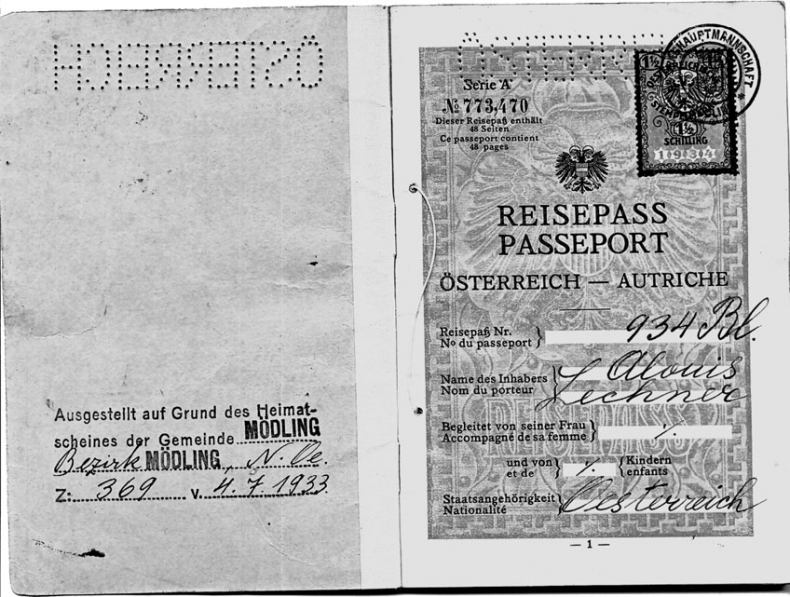 ÖSTERREICH
Ausgestellt auf Grund des Heimat-
scheines der Gemeinde MÖDLING
Bezirk MÖDLING, N. Oe.
Z: 369 v. 4. 7. 1933.
BEZIRKSHAUPTMANNSCHAFT
MÖDLING
1½ 1½
1½
SCHILLING
1934
Serie A
№ 773,470
Dieser Reisepaß enthält
48 Seiten
Ce passeport contient
48 pages
REISEPASS
PASSEPORT
ÖSTERREICH — AUTRICHE
Reisepaß Nr.
No du passeport } 934 Bl.
Name des Inhabers
Nom du porteur } Alouis Lechner
Begleitet von seiner Frau
Accompagné de sa femme } ·/.
und von
et de } ·/. { Kindern
enfants
Staatsangehörigkeit
Nationalité } Oesterreich
REISEPASS
— 1 —